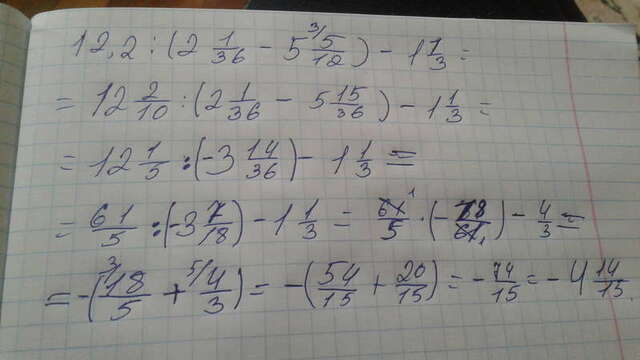 12,2 : (2 1/36 - 5 3/ 5/12) - 1 1/3 =
= 12 2/10 : (2 1/36 - 5 15/36) - 1 1/3 =
= 12 1/5 : (-3 14/36) - 1 1/3 =
= 61/5 : (-3 7/18) - 1 1/3 = 61 1/5 · (- 18/61 1) - 4/3 =
= -(3/ 18/5 + 5/ 4/3) = -(54/15 + 20/15) = - 74/15 = - 4 14/15.